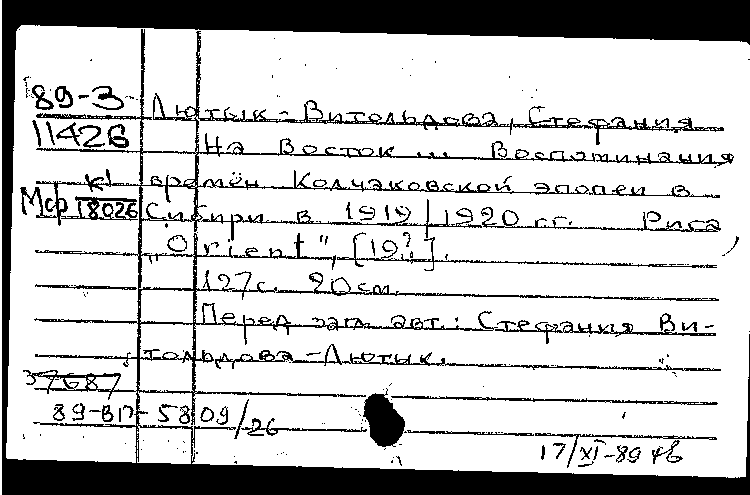 89-3 Лютык-Витольдова, Стефания
11426 На Восток ... Воспоминания
к1 времён Колчаковской эпопеи в
Мф 18026 Сибири в 1919/1920 гг. Рига,
„Orient", [19?].
127с. 20см.
Перед загл. авт.: Стефания Ви-
тольдова-Лютык.
37687
89-ВП-5809/26
17/XI-89